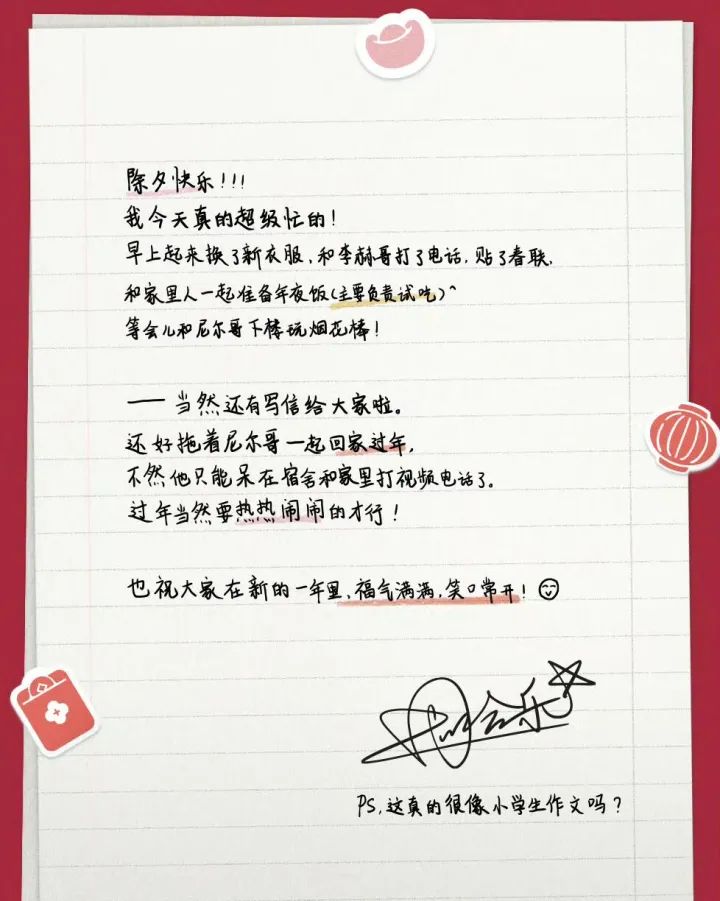 除夕快乐!!!
我今天真的超级忙的!
早上起来换了新衣服,和李赫哥打了电话,贴了春联,
和家里人一起准备年夜饭(主要负责试吃)^
等会儿和尼尔哥下楼玩烟花棒!
—— 当然还有写信给大家啦。
还好拖着尼尔哥一起回家过年,
不然他只能呆在宿舍和家里打视频电话了。
过年当然要热热闹闹的才行!
也祝大家在新的一年里,福气满满,笑口常开!
PS,这真的很像小学生作文吗?